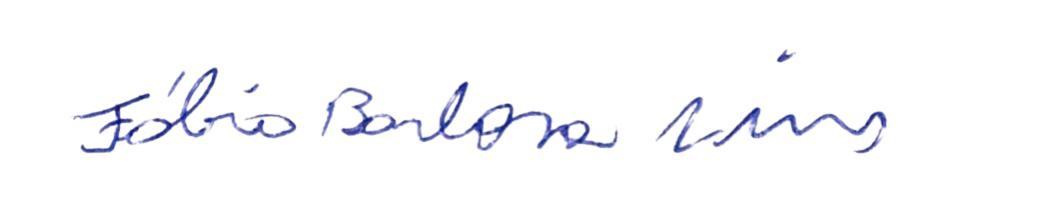 Fábio Barbosa Lins